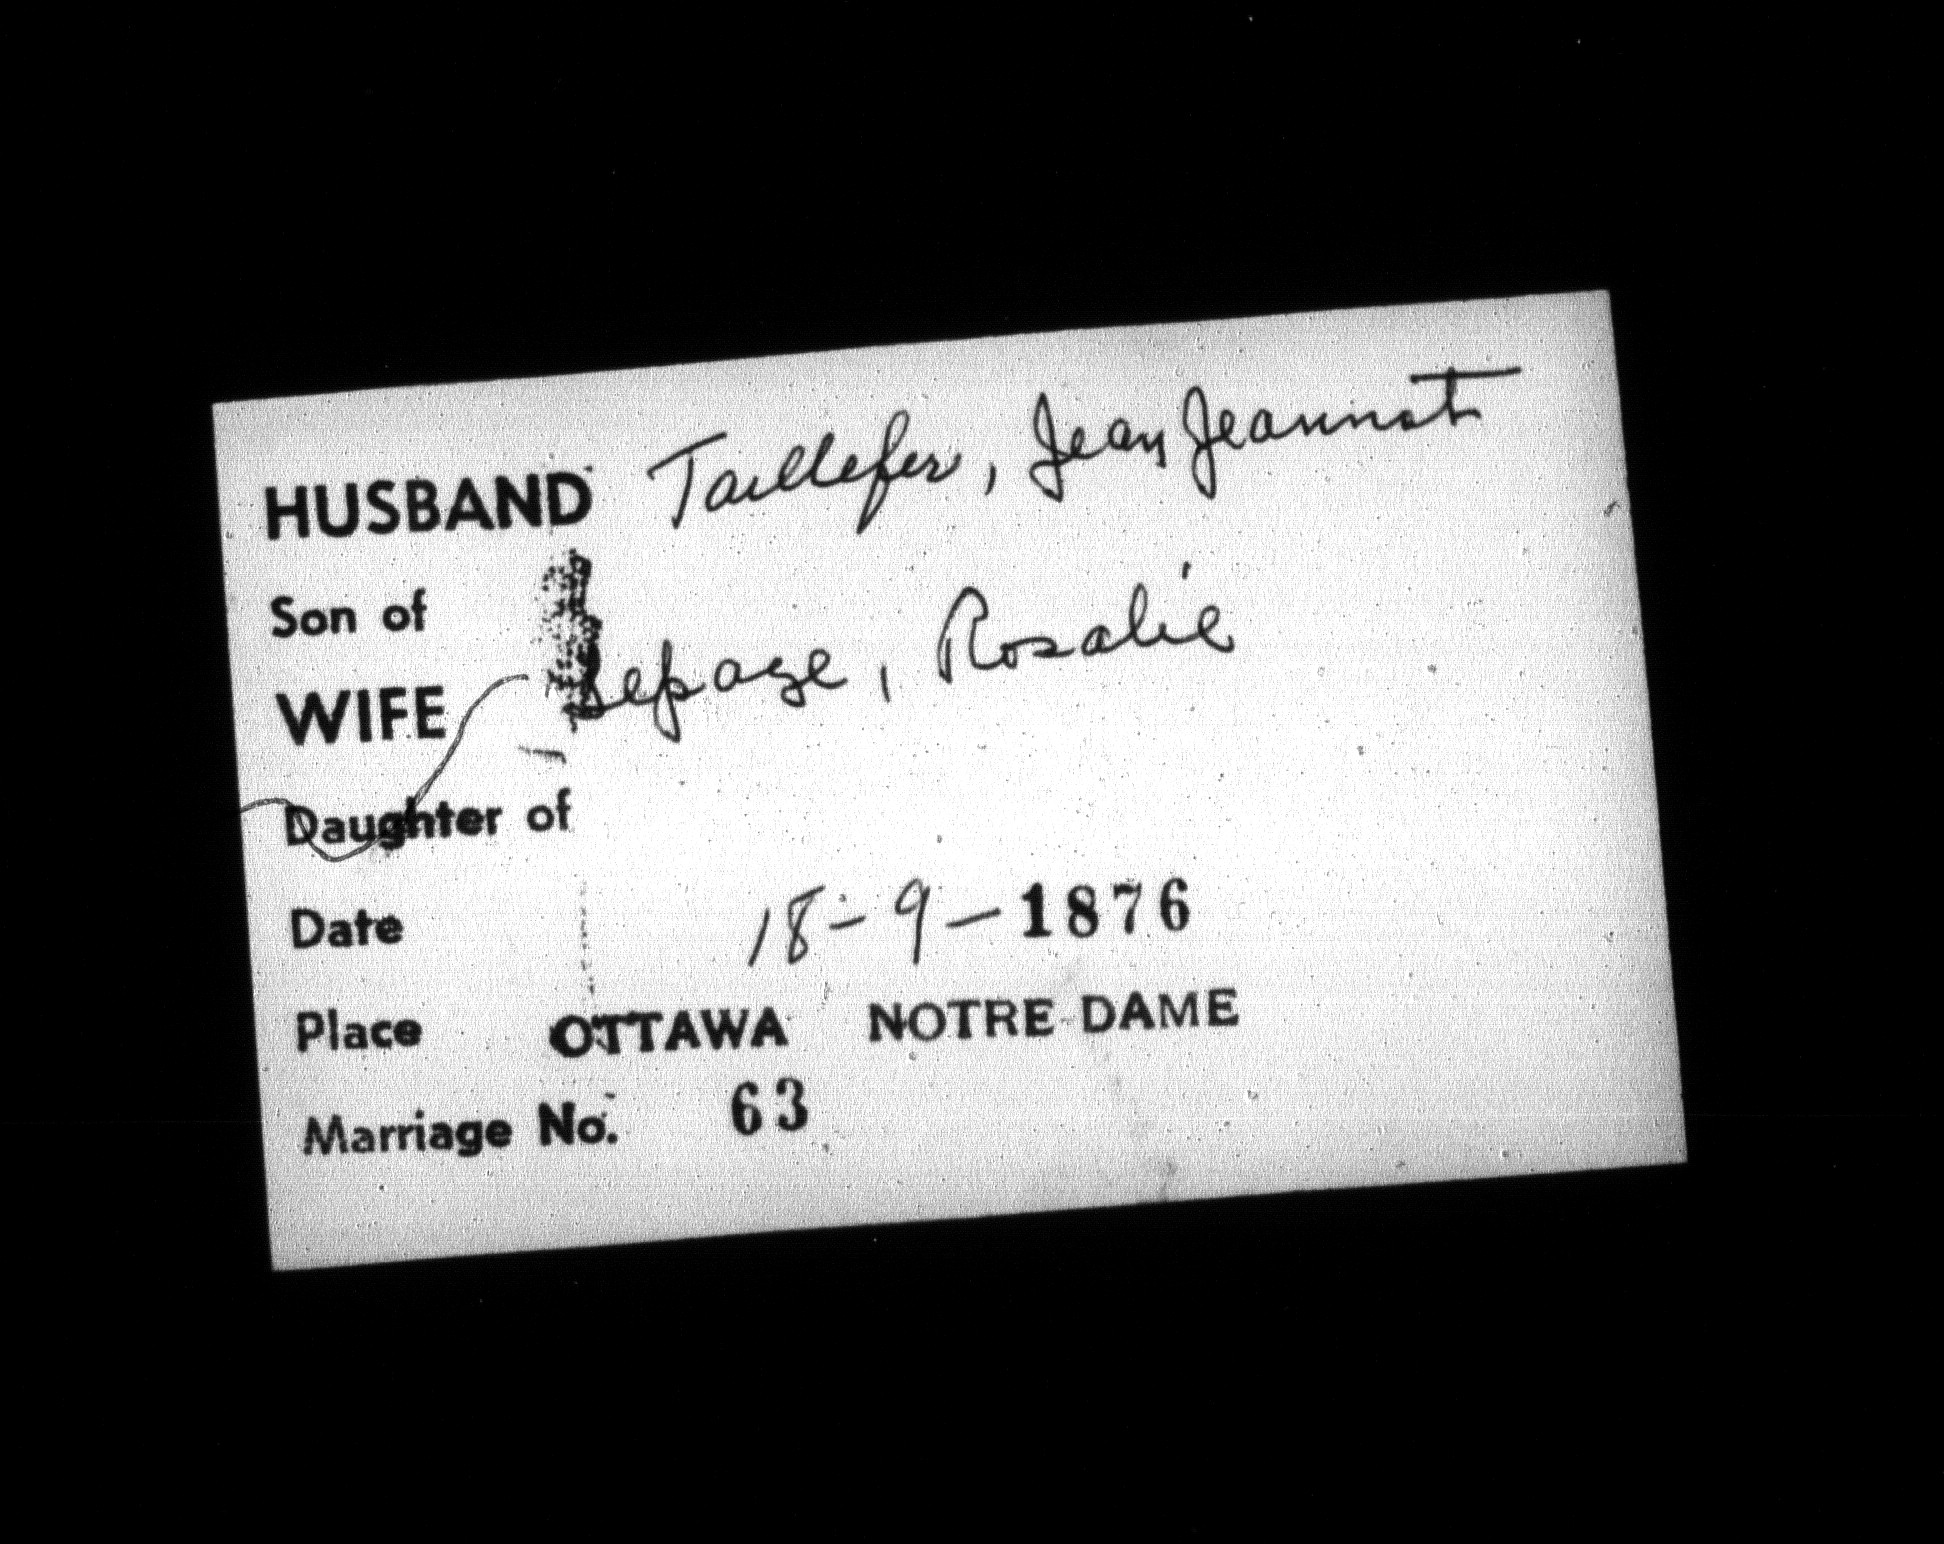 HUSBAND Taillefer, Jean Jeannot
Son of
WIFE Lepage, Rosalie
Daughter of
Date 18-9-1876
Place OTTAWA NOTRE DAME
Marriage No. 63